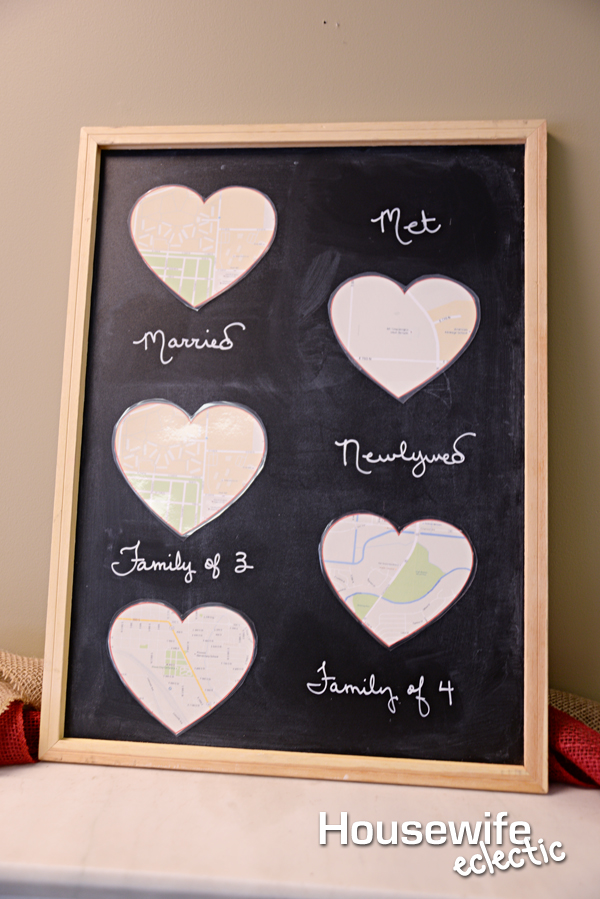 Met
Married
Newlywed
Family of 3
Family of 4
Housewife
eclectic